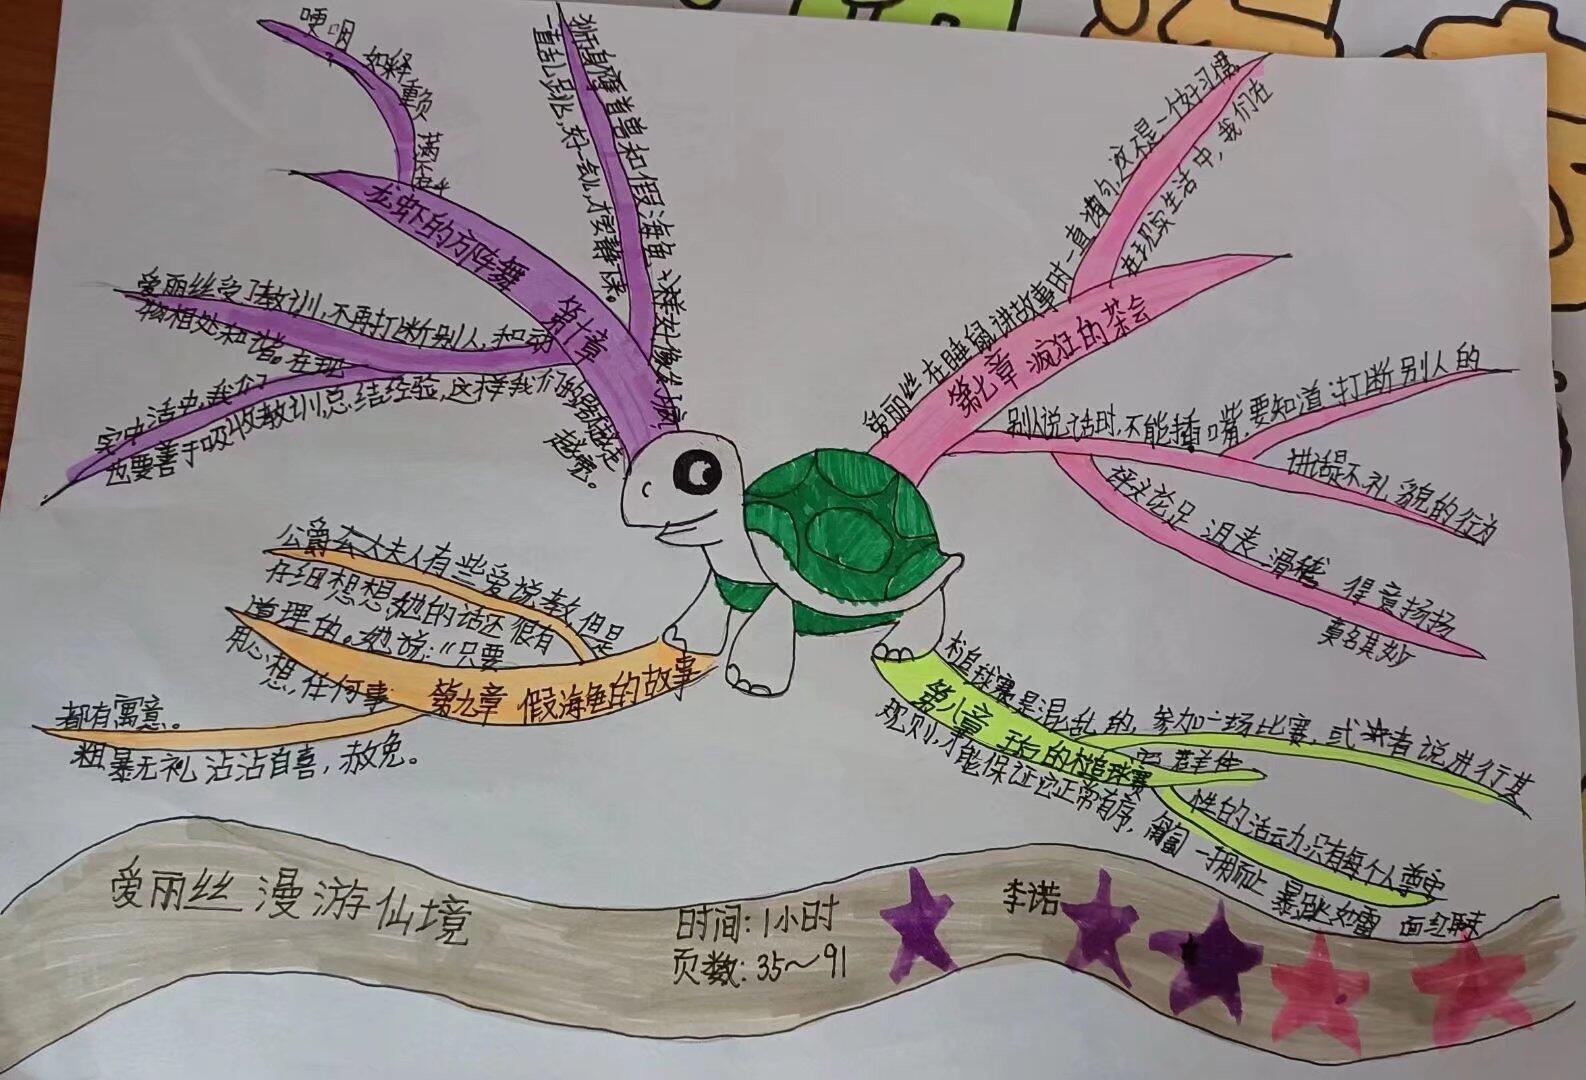 哽咽 如释重负 满不在乎
龙虾的方阵舞 第十章
狮身鹰首兽和假海龟
一直乱跳,好一会儿,才安静下来。
爱丽丝受了教训,不再打断别人,和动
物相处和谐。在现
实中活中我们
也要善于吸收教训,总结经验,这样我们的路越走
越宽。
爱丽丝在睡鼠讲故事时一直询问,这不是一个好习惯
在现实生活中,我们在
第七章 疯狂的茶会
别人说话时,不能插嘴。要知道打断别人的
讲话是不礼貌的行为
评头论足 沮丧 滑稽 得意扬扬
莫名其妙
公爵夫人有些爱说教,但是
仔细想想,她的话还很有
道理的。她说:"只要
用心想,任何事
第九章 假海龟的故事
都有寓意。
粗暴无礼 沾沾自喜,赦免。
槌球赛是混乱的,参加一场比赛,或者说进行某
第八章 王后的槌球赛
集体
性的活动只有每个人遵守
规则,才能保证它正常有序,
一拥而上 暴跳如雷 面红耳赤
爱丽丝漫游仙境
时间:1小时
页数:35~91
李诺